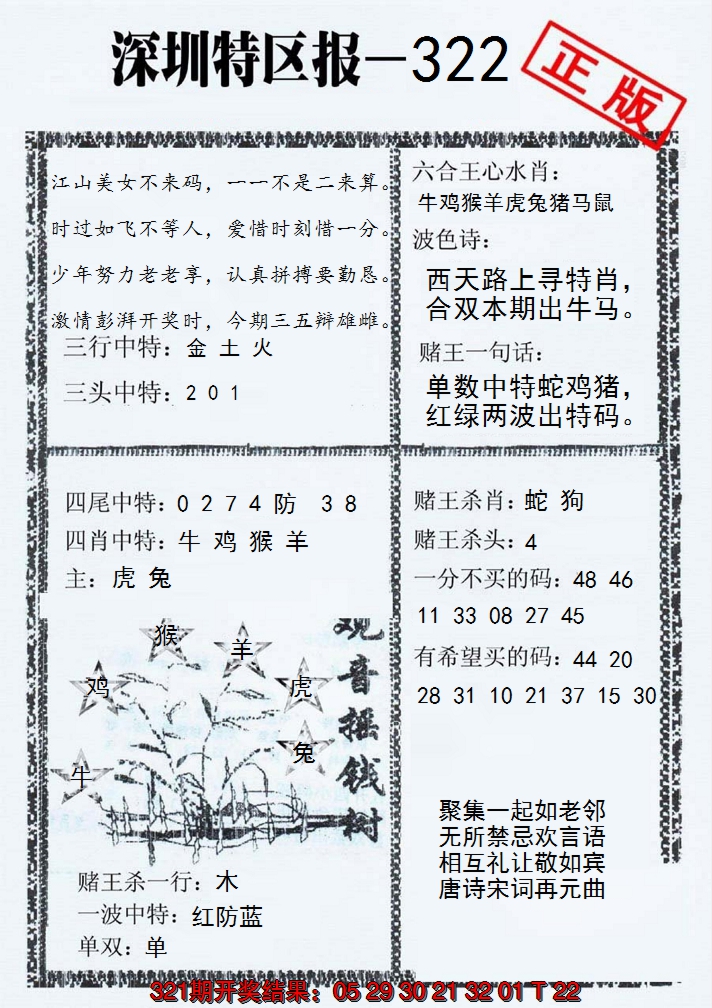 深圳特区报—322
正版
江山美女不来码，一一不是二来算。
时过如飞不等人，爱惜时刻惜一分。
少年努力老老享，认真拼搏要勤恳。
激情彭湃开奖时，今期三五辩雄雌。
三行中特：金 土 火
三头中特：2 0 1
六合王心水肖：
牛鸡猴羊虎兔猪马鼠
波色诗：
西天路上寻特肖，
合双本期出牛马。
赌王一句话：
单数中特蛇鸡猪，
红绿两波出特码。
四尾中特：0 2 7 4 防 3 8
四肖中特：牛 鸡 猴 羊
主：虎 兔
猴
羊
鸡
虎
兔
牛
观音摇钱树
赌王杀一行：木
一波中特：红防蓝
单双：单
赌王杀肖：蛇 狗
赌王杀头：4
一分不买的码：48 46
11 33 08 27 45
有希望买的码：44 20
28 31 10 21 37 15 30
聚集一起如老邻
无所禁忌欢言语
相互礼让敬如宾
唐诗宋词再元曲
321期开奖结果：05 29 30 21 32 01 T 22